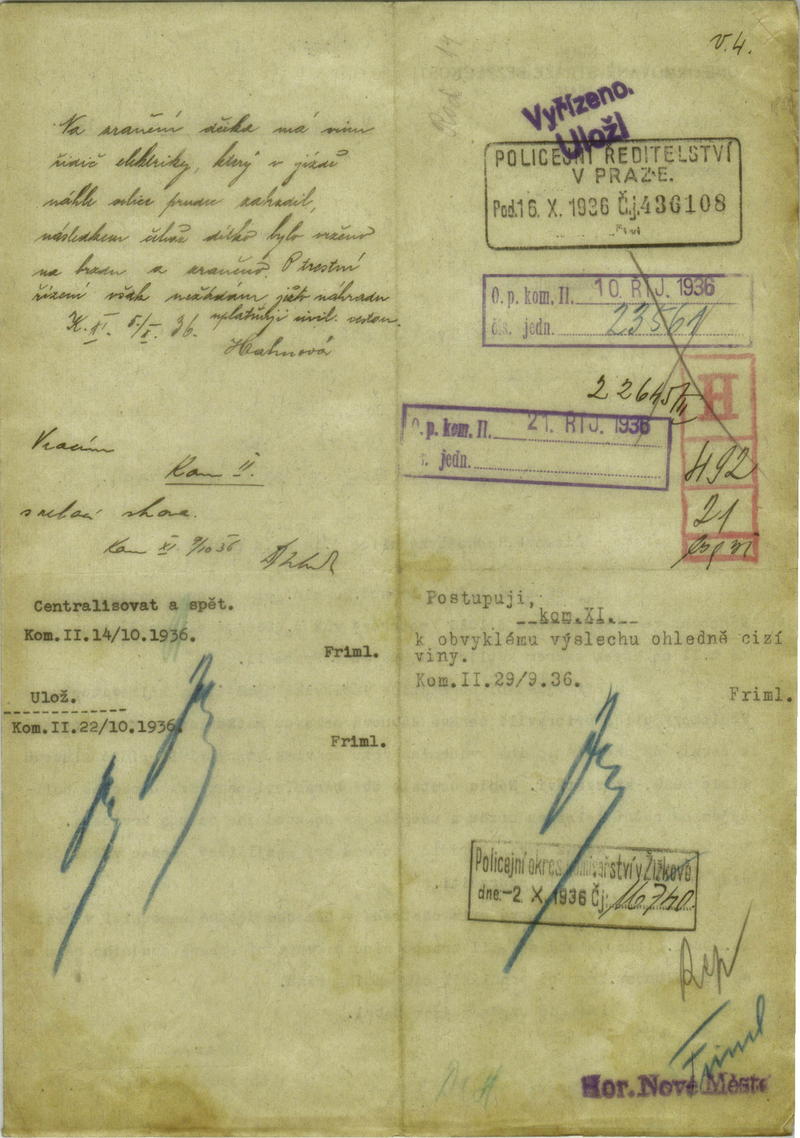 Na zranění dítka má vinu
řidič elektriky, který v jízdě
náhle velice prudce zabrzdil,
následkem čehož dítko bylo vrženo
na brzdu a zraněno. O trestní
řízení však nežádám, ježto náhradu
K. XI. 5./X. 36. uplatňuji civil. cestou.
Hahnová
Vracím
Kom II.
s relací shora.
Kom XI 9/10 36
Centralisovat a spět.
Kom.II.14/10.1936.
Friml.
Ulož.
Kom.II.22/10.1936.
Friml.
V.4.
Vyřízeno.
Uloží
POLICEJNÍ ŘEDITELSTVÍ
V PRAZE.
Pod.16. X. 1936 Č.j.436108
O. p. kom. II. 10. ŘÍJ. 1936
čís. jedn. 23561
22645/II
O. p. kom. II. 21. ŘÍJ. 1936
č. jedn.
H
492
21
Postupuji,
kom.XI.
k obvyklému výslechu ohledně cizí
viny.
Kom.II.29/9.36.
Friml.
Policejní okres. komisařství v Žižkově
dne: -2. X. 1936 Čj. 16740.
Friml
Hor. Nové Město